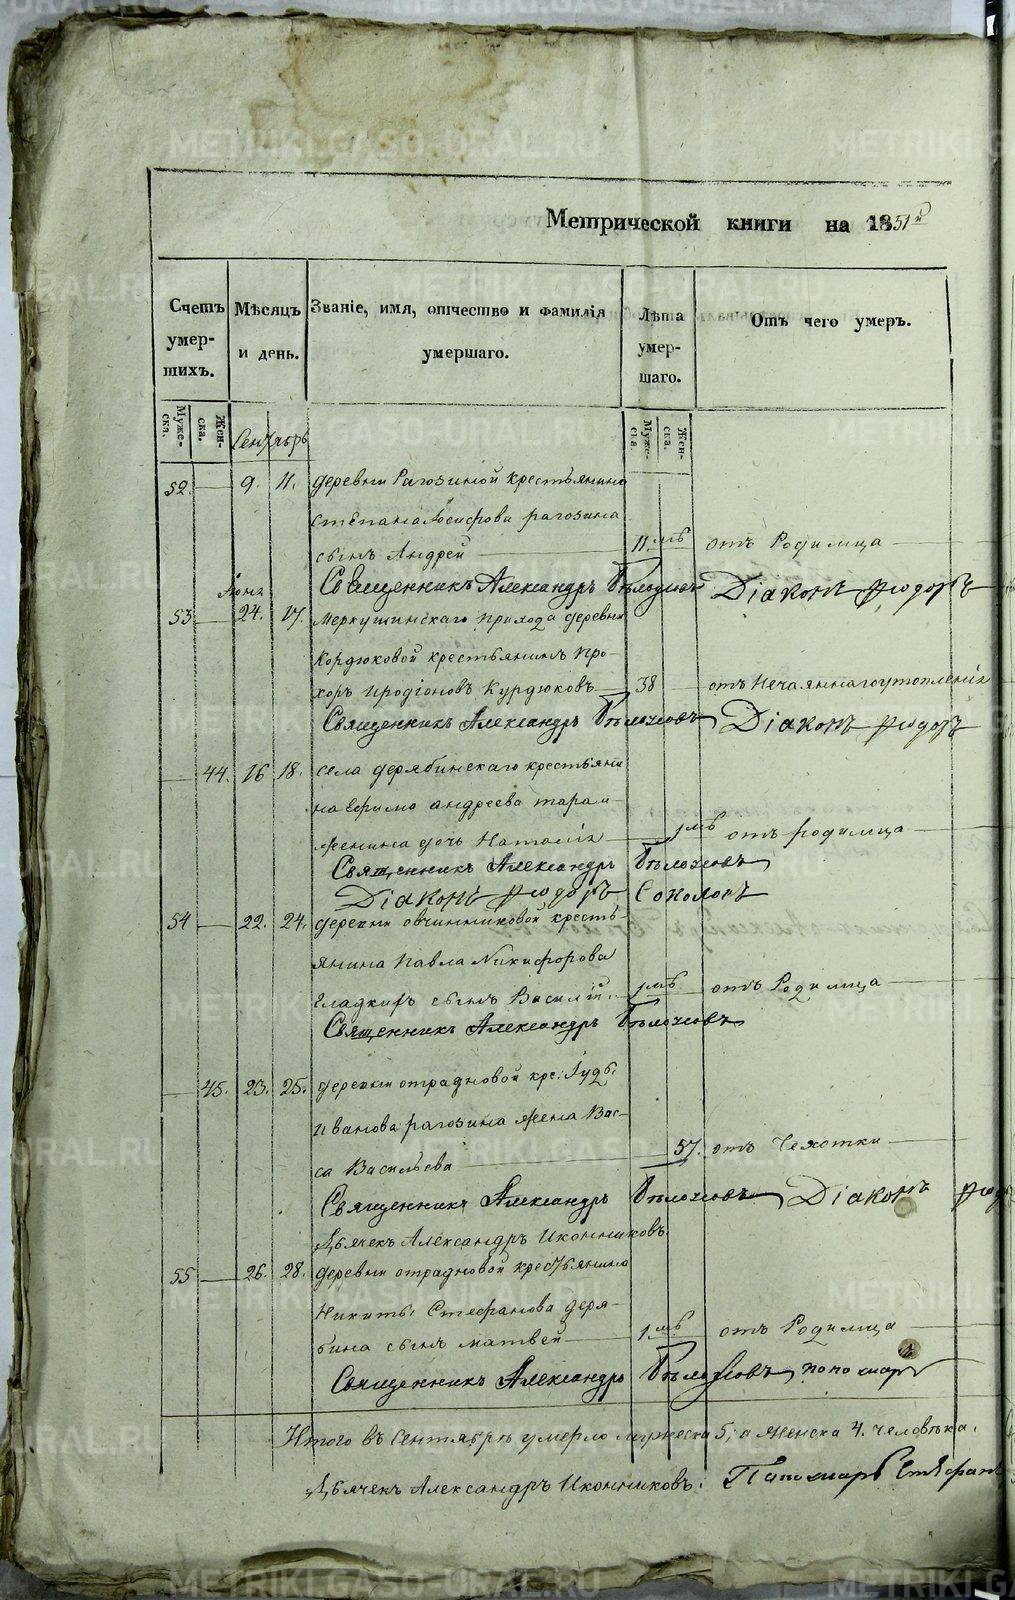 Метрической книги на 1851й
Счетъ умер-шихъ.
Мѣсяцъ и день.
Званіе, имя, отчество и фамилія умершаго.
Лѣта умер-шаго.
Отъ чего умеръ.
Муже-ска. Жен-ска.
Муже-ска. Жен-ска.
Сентябрь
52. 9. 11. деревни Рагозиной крестьянина
Степана Іосифова рагозина
сынъ Андрей 11 мѣ отъ Родимца
Священникъ Александръ Діаконъ Ѳеодоръ
53 24. 17. Меркушинскаго прихода деревни
Кордюковой крестьянинъ Про-
хоръ Иродіоновъ Курдюковъ 38 отъ Нечаяннаго утопленія
Священникъ Александръ Діаконъ Ѳеодоръ
44. 16 18. села дерябинскаго крестьяни
на Ефима андреева
дочь Наталія 1 мѣ отъ родимца
Священникъ Александръ
Діаконъ Ѳеодоръ Соколовъ
54 22. 24. деревни овчинниковой кресть-
янина Павла Никифорова
Гладкихъ сынъ Василій 1 мѣ отъ Родимца
Священникъ Александръ
45. 23. 25. деревни отрадновой кре:
Иванова рагозина жена Вас-
са Васильева 57. отъ Чехотки
Священникъ Александръ Діаконъ
Дьячекъ Александръ Иконниковъ.
55 26. 28. деревни отрадновой крестьянина
Никиты Стефанова деря-
бина сынъ матвей 1 мѣ отъ Родимца
Священникъ Александръ
Итого въ Сентябрѣ умерло мужеска 5, а женска 4. человѣка.
Дьячекъ Александръ Иконниковъ. Пономарь
METRIKI.GASO-URAL.RU